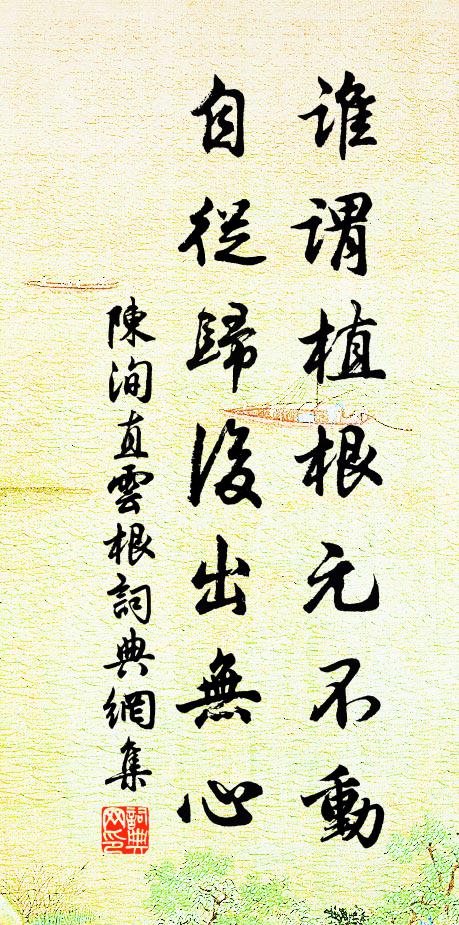 誰謂植根元不動
自從歸後出無心
陳洵直雲根詞典網集
詞典网印